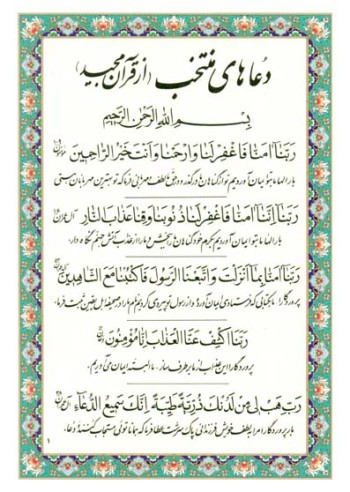 دعاهای منتخب (از قرآن مجید)
بِسْمِ اللهِ الرَّحْمٰنِ الرَّحِیْمِ
رَبَّنَا اٰمَنَّا فَاغْفِرْ لَنَا وَارْحَمْنَا وَاَنْتَ خَیْرُ الرَّاحِمِیْنَ
بارالها ما بتو ایمان آوردیم تو از گناهان ما درگذر و در حق ما لطف و مهربانی فرما که تو بهترین مهربانان هستی
رَبَّنَا اِنَّنَا اٰمَنَّا فَاغْفِرْ لَنَا ذُنُوبَنَا وَقِنَا عَذَابَ النَّارِ آل عمران
بارالها ما بتو ایمان آوردیم بکرم خود گناهان ما ببخش و ما را از عذاب آتش جهنم نگاه دار.
رَبَّنَا اٰمَنَّا بِمَا اَنْزَلْتَ وَاتَّبَعْنَا الرَّسُوْلَ فَاکْتُبْنَا مَعَ الشَّاهِدِیْنَ
پروردگارا ما بکتابی که فرستادی ایمان آورده و از رسول تو پیروی کردیم نام ما را در صحیفه اهل یقین ثبت فرما.
رَبَّنَا اکْشِفْ عَنَّا الْعَذَابَ اِنَّا مُؤْمِنُوْنَ
پروردگارا این عذاب از ما برطرف ساز، ما البته ایمان می آوریم.
رَبِّ هَبْ لِیْ مِنْ لَدُنْکَ ذُرِّیَّةً طَیِّبَةً اِنَّکَ سَمِیْعُ الدُّعَاءِ آل عمران
بار پروردگارا مرا بلطف خویش فرزندانی پاک سرشت عطا فرما که همانا توئی مستجاب کننده دعا.
۱